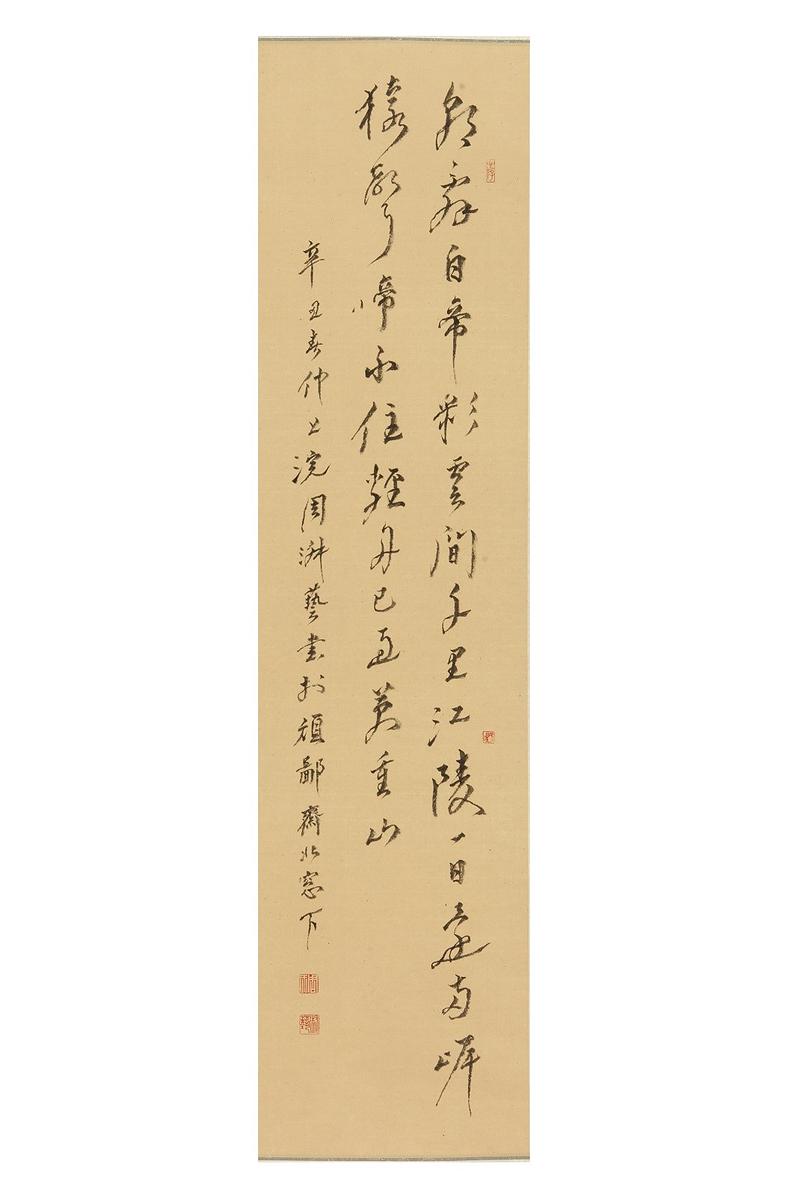 朝辞白帝彩雲間千里江陵一日還兩岸
猿聲啼不住輕舟已過萬重山
辛丑春仲上浣周湖藝書於頑鄙齋北窓下